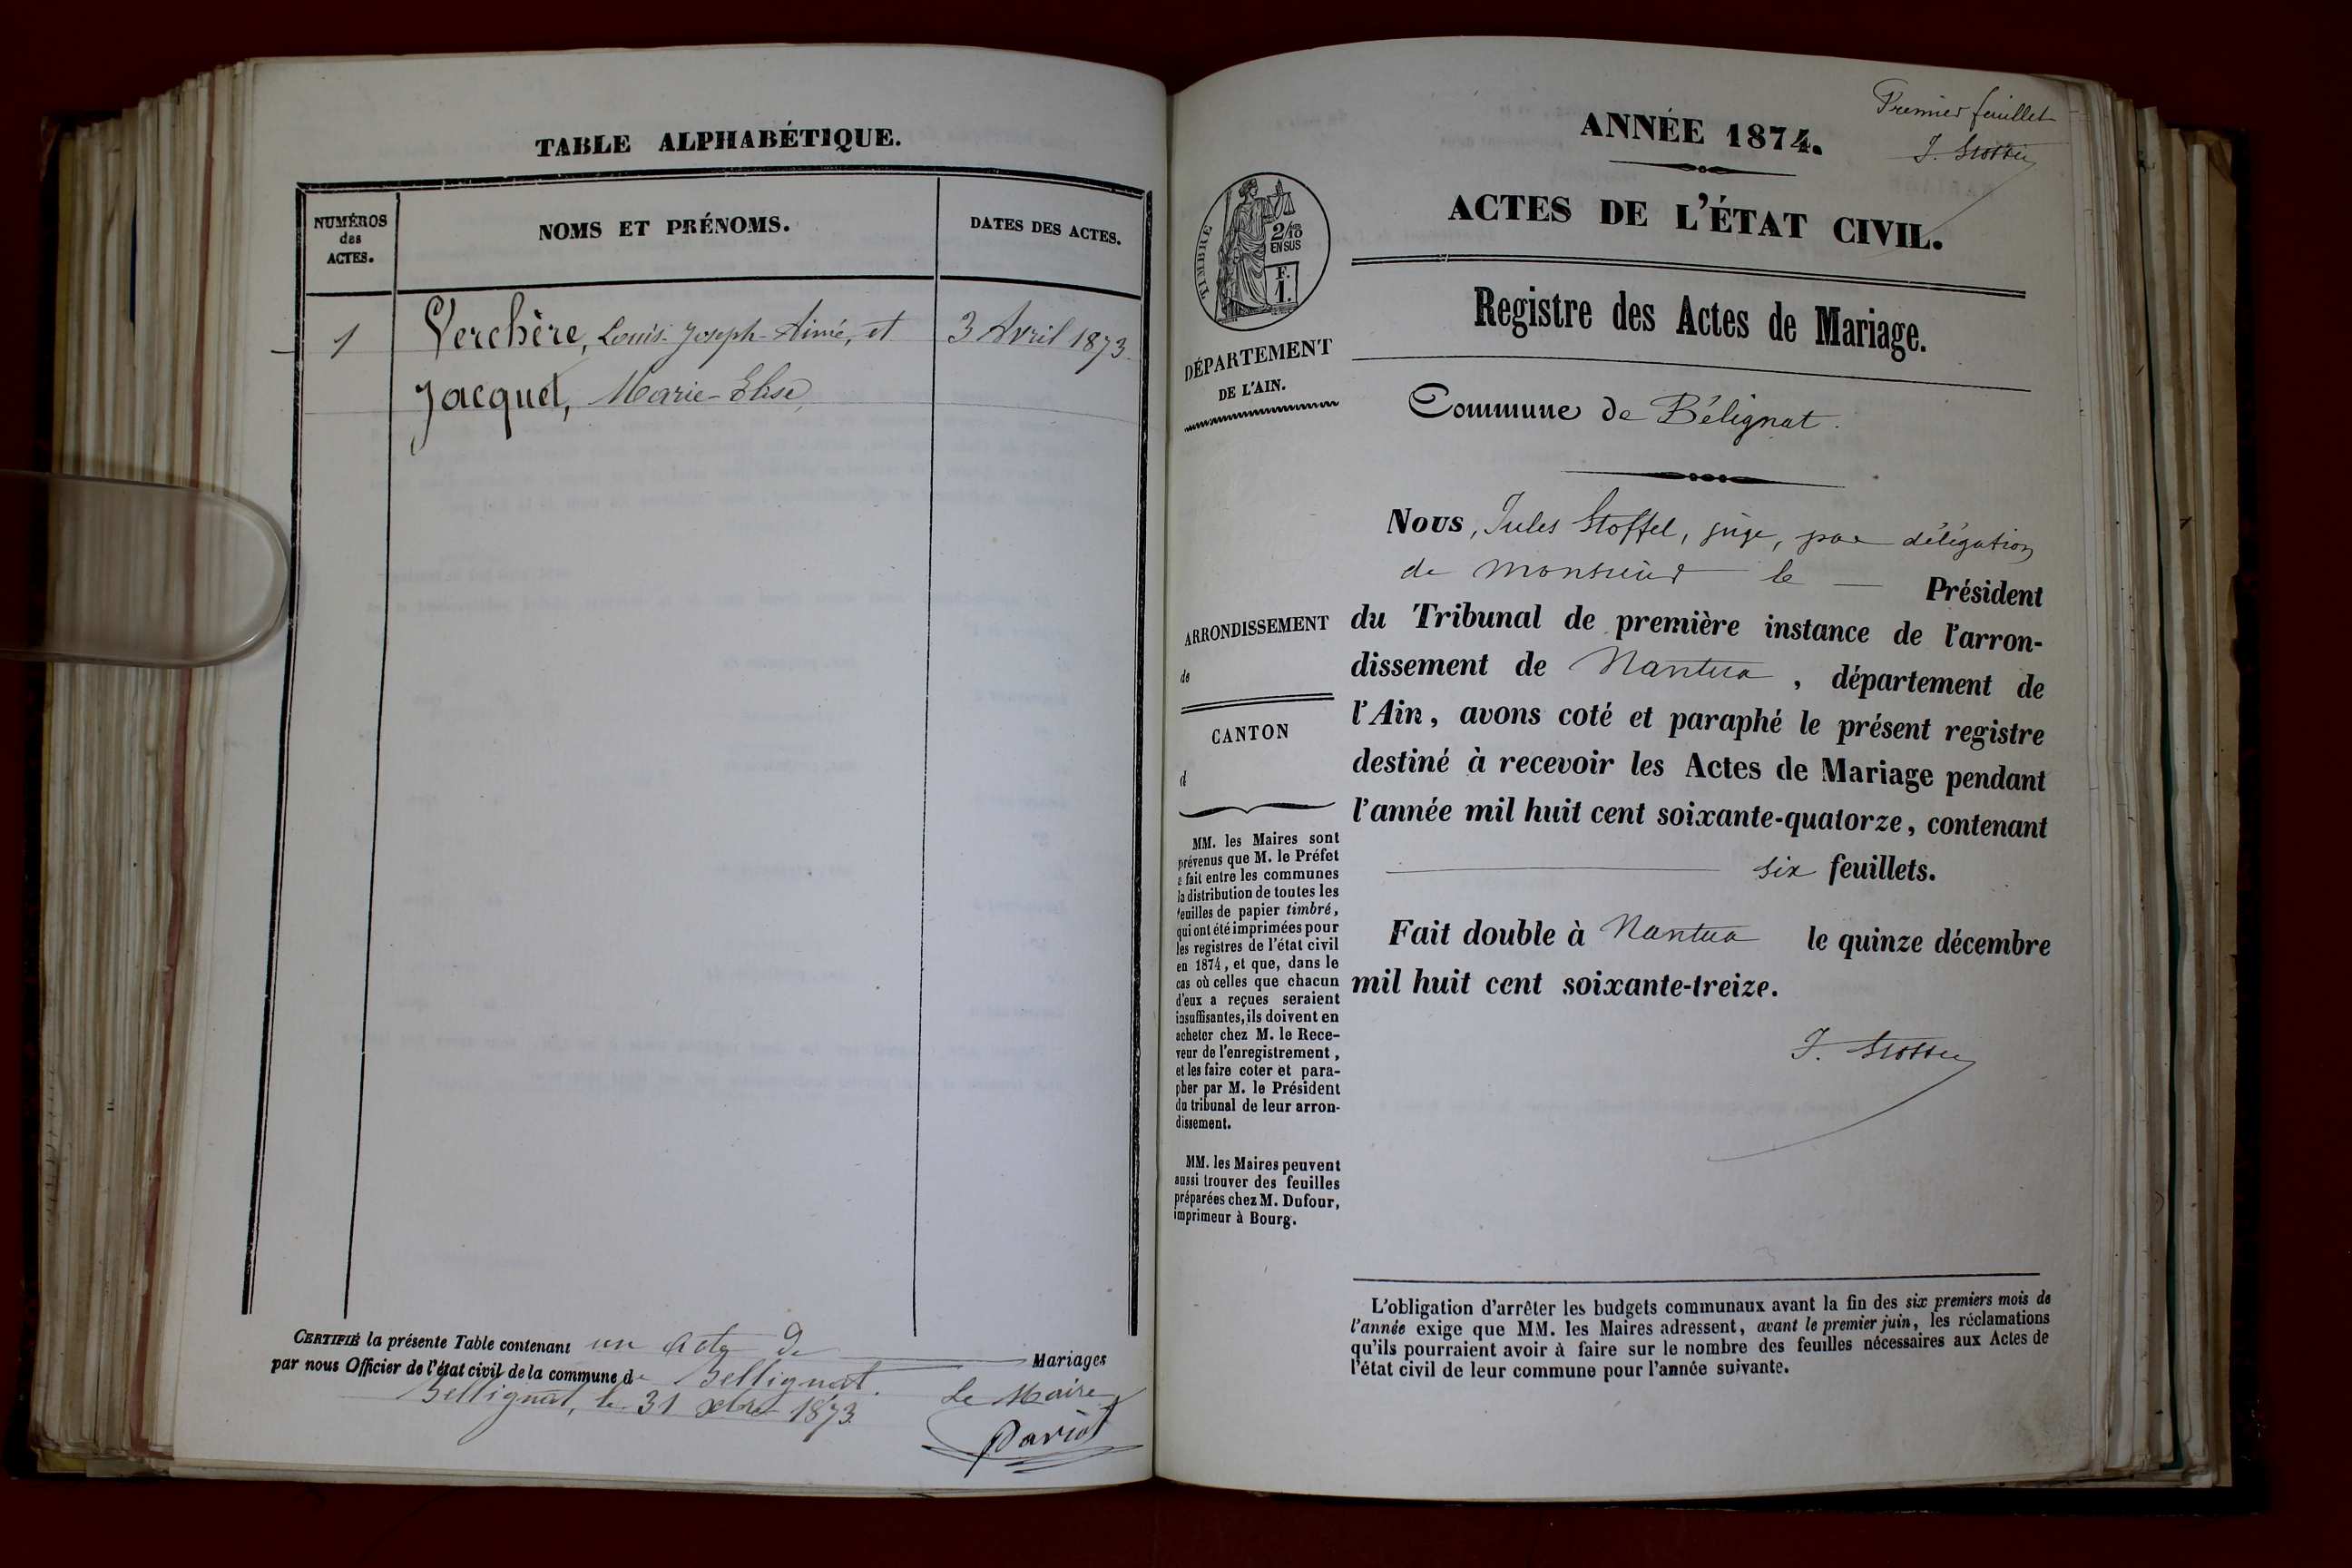 TABLE ALPHABÉTIQUE.
NUMÉROS
des
ACTES.
NOMS ET PRÉNOMS.
DATES DES ACTES.
1
Verchère, Louis-Joseph-Aimé, et
3 Avril 1873
Jacquet, Marie-Elise,
CERTIFIÉ la présente Table contenant un acte de Mariages
par nous Officier de l'état civil de la commune de Bellignat.
Bellignat, le 31 Xbre 1873.
Le Maire
Pariot
Premier feuillet
ANNÉE 1874.
ACTES DE L'ÉTAT CIVIL.
TIMBRE
2/10
EN SUS
F.
1.
Registre des Actes de Mariage.
DÉPARTEMENT
DE L'AIN.
Commune de Bélignat.
Nous, Jules Stoffel, juge, par délégation
de monsieur le — Président
du Tribunal de première instance de l'arron-
dissement de Nantua, département de
l'Ain, avons coté et paraphé le présent registre
destiné à recevoir les Actes de Mariage pendant
l'année mil huit cent soixante-quatorze, contenant
six feuillets.
Fait double à Nantua le quinze décembre
mil huit cent soixante-treize.
ARRONDISSEMENT
de
CANTON
d
MM. les Maires sont
prévenus que M. le Préfet
a fait entre les communes
la distribution de toutes les
feuilles de papier timbré,
qui ont été imprimées pour
les registres de l'état civil
en 1874, et que, dans le
cas où celles que chacun
d'eux a reçues seraient
insuffisantes, ils doivent en
acheter chez M. le Rece-
veur de l'enregistrement,
et les faire coter et para-
pher par M. le Président
du tribunal de leur arron-
dissement.
MM. les Maires peuvent
aussi trouver des feuilles
préparées chez M. Dufour,
imprimeur à Bourg.
L'obligation d'arrêter les budgets communaux avant la fin des six premiers mois de
l'année exige que MM. les Maires adressent, avant le premier juin, les réclamations
qu'ils pourraient avoir à faire sur le nombre des feuilles nécessaires aux Actes de
l'état civil de leur commune pour l'année suivante.